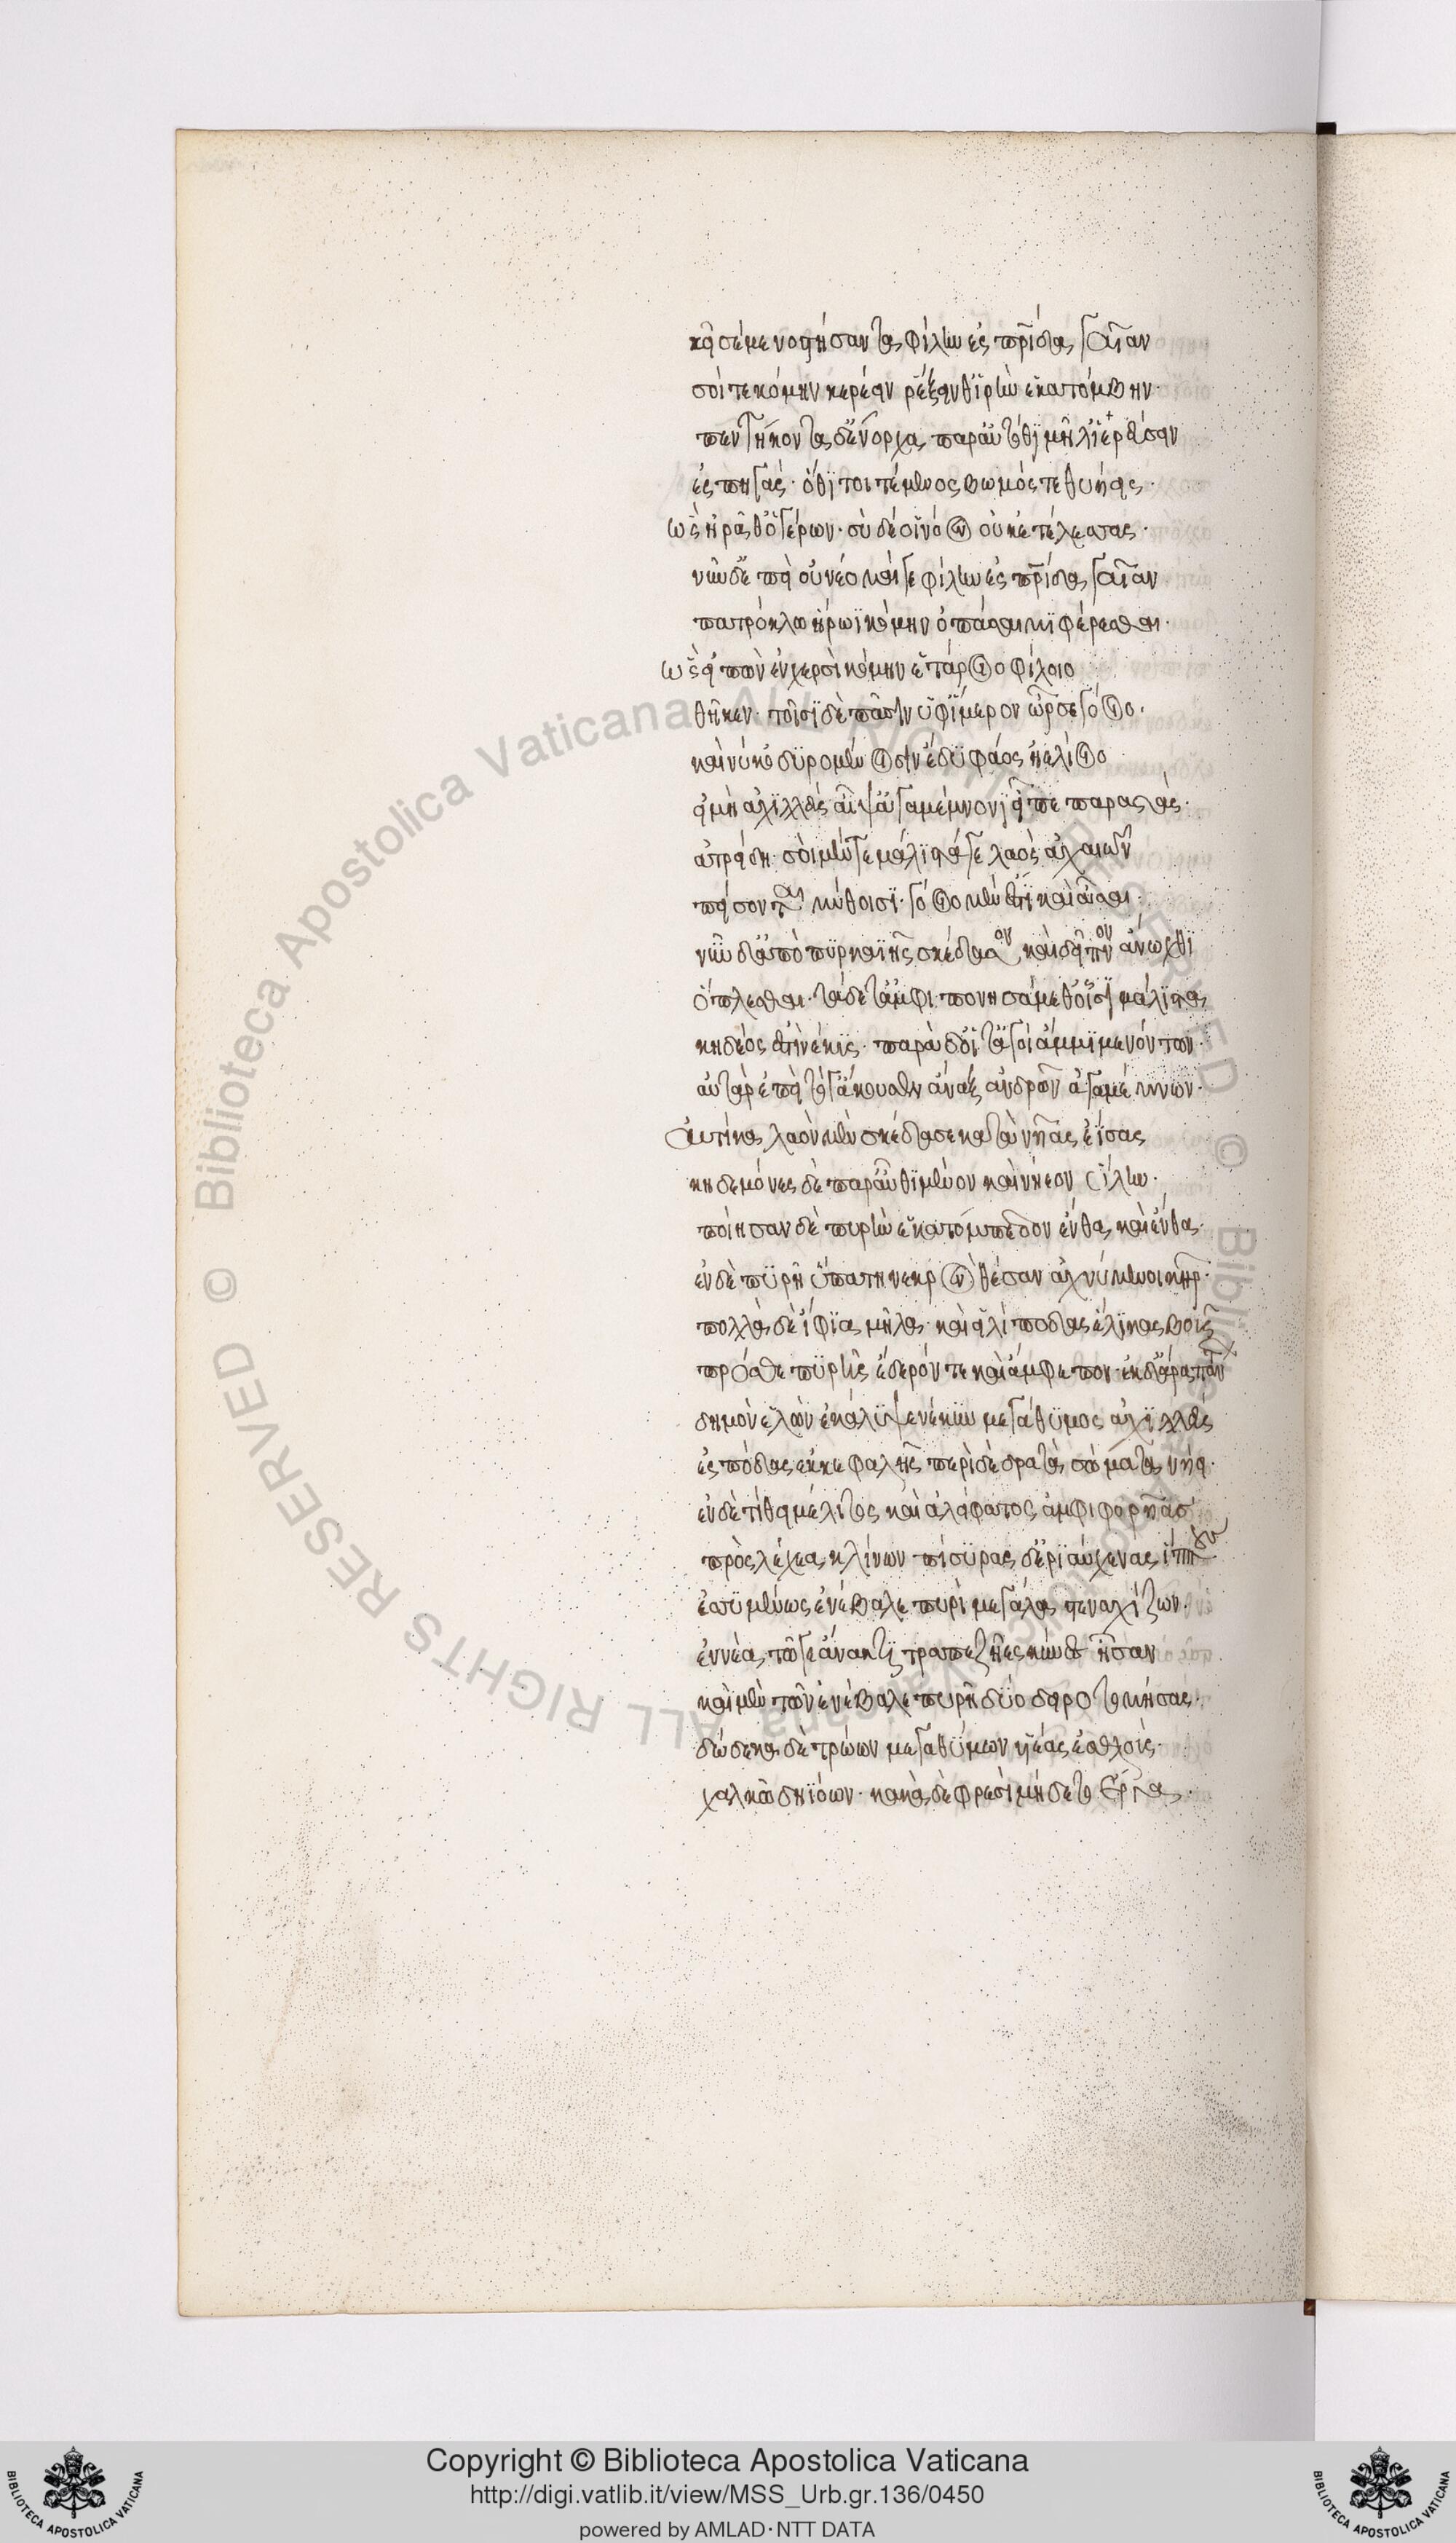 κεῖσέ με νοστήσαντα φίλην ἐς πατρίδα γαῖαν
σοί τε κόμην κερέειν ῥέξειν θ' ἱερὴν ἑκατόμβην·
πεντήκοντα δ' ἔνορχα παρ' αὐτόθι μῆλ' ἱερεύσειν
ἐς πηγάς· ὅθι τοι τέμενος βωμός τε θυήεις·
ὣς ἠρᾶθ' ὁ γέρων· σὺ δέ οἱ νόον οὐκ ἐτέλεσσας·
νῦν δ' ἐπεὶ οὐ νέομαί γε φίλην ἐς πατρίδα γαῖαν
πατρόκλω ἥρωϊ κόμην ὀπάσαιμι φέρεσθαι·
ὣς εἰπὼν ἐν χερσὶ κόμην ἑτάροιο φίλοιο
θῆκεν· τοῖσι δὲ πᾶσιν ὑφ' ἵμερον ὦρσε γόοιο·
καί νύ κ' ὀδυρομένοισιν ἔδυ φάος ἠελίοιο
εἰ μὴ ἀχιλλεὺς αἶψ' ἀγαμέμνονι εἶπε παραστάς·
ἀτρείδη· σοὶ μέν γε μάλιστά γε λαὸς ἀχαιῶν
πείσονται μύθοισι· γόοιο μέν ἐστι καὶ ἆσαι·
νῦν δ' ἀπὸ πυρκαϊῆς σκέδασον καὶ δεῖπνον ἄνωχθι
ὅπλεσθαι· τάδε δ' ἀμφιπονησάμεθ' οἷσι μάλιστα
κήδεός ἐστι νέκυς· παρὰ δ' οἵ τ' ἀγοὶ ἄμμι μενόντων·
αὐτὰρ ἐπεὶ τόγ' ἄκουσεν ἄναξ ἀνδρῶν ἀγαμέμνων·
αὐτίκα λαὸν μὲν σκέδασε κατὰ νῆας ἐΐσας
κηδεμόνες δὲ παρ' αὖθι μένον καὶ νήεον ὕλην·
ποίησαν δὲ πυρὴν ἑκατόμπεδον ἔνθα καὶ ἔνθα·
ἐν δὲ πυρῇ ὑπάτη νεκρὸν θέσαν ἀχνύμενοι κῆρ·
πολλὰ δὲ ἴφια μῆλα καὶ εἰλίποδας ἕλικας βοῦς
πρόσθε πυρῆς ἔδερόν τε καὶ ἄμφεπον· ἐκ δ' ἄρα πάντων
δημὸν ἑλὼν ἐκάλυψε νέκυν μεγάθυμος ἀχιλλεὺς
ἐς πόδας ἐκ κεφαλῆς περὶ δὲ δρατὰ σώματα νήει·
ἐν δὲ τίθει μέλιτος καὶ ἀλείφατος ἀμφιφορῆας
πρὸς λέχεα κλίνων πίσυρας δ' ἐριαύχενας ἵππους
ἐσσυμένως ἐνέβαλε πυρὶ μεγάλα στεναχίζων·
ἐννέα τῶ γε ἄνακτι τραπεζῆες κύνες ἦσαν
καὶ μὲν τῶν ἐνέβαλε πυρῇ δύο δειροτομήσας·
δώδεκα δὲ τρώων μεγαθύμων υἱέας ἐσθλοὺς·
χαλκῶ δηϊόων· κακὰ δὲ φρεσὶ μήδετο ἔργα·
Copyright © Biblioteca Apostolica Vaticana
http://digi.vatlib.it/view/MSS_Urb.gr.136/0450
powered by AMLAD·NTT DATA